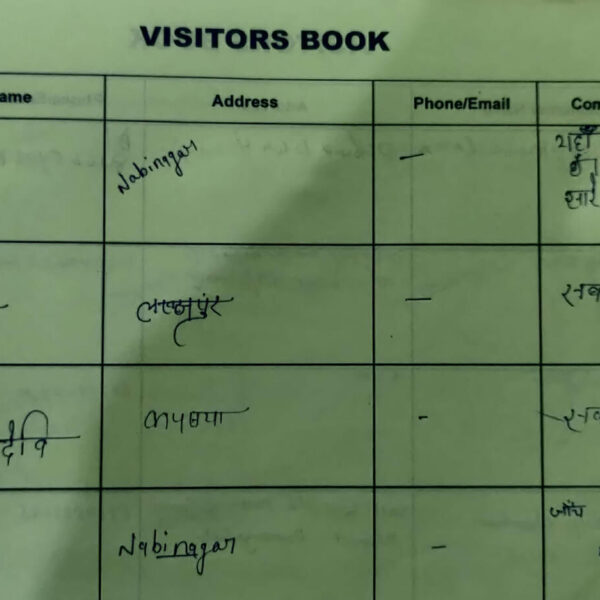 VISITORS BOOK
ame Address Phone/Email Com
Nabinagar — यहाँ
का
सारे
— सब
देवि - सब
Nabinagar — जाँच